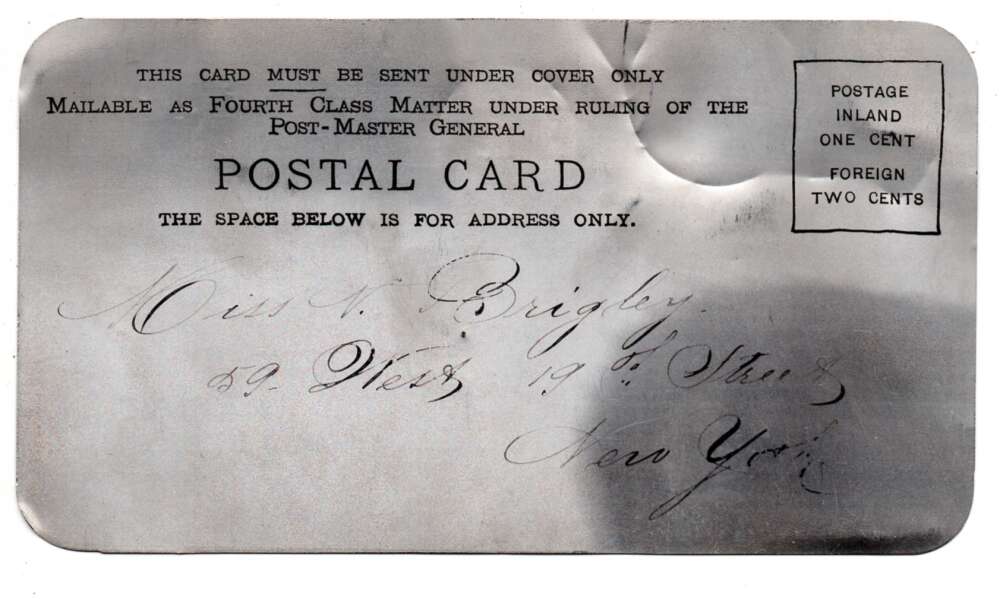 THIS CARD MUST BE SENT UNDER COVER ONLY
MAILABLE AS FOURTH CLASS MATTER UNDER RULING OF THE
POST-MASTER GENERAL
POSTAL CARD
THE SPACE BELOW IS FOR ADDRESS ONLY.
POSTAGE
INLAND
ONE CENT
FOREIGN
TWO CENTS
Miss N. Brigley.
59 West 19th Street
New York